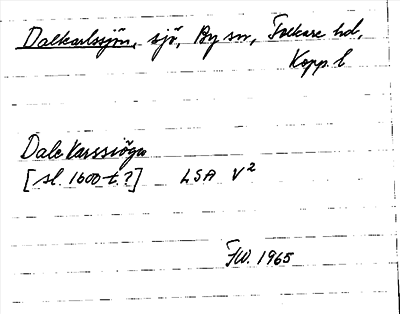 Dalkarlssjön, sjö, By sn, Folkare hd,
Kopp. l
Dale Karssiögn
[sl. 1600-t.?] LSA V²
FW. 1965